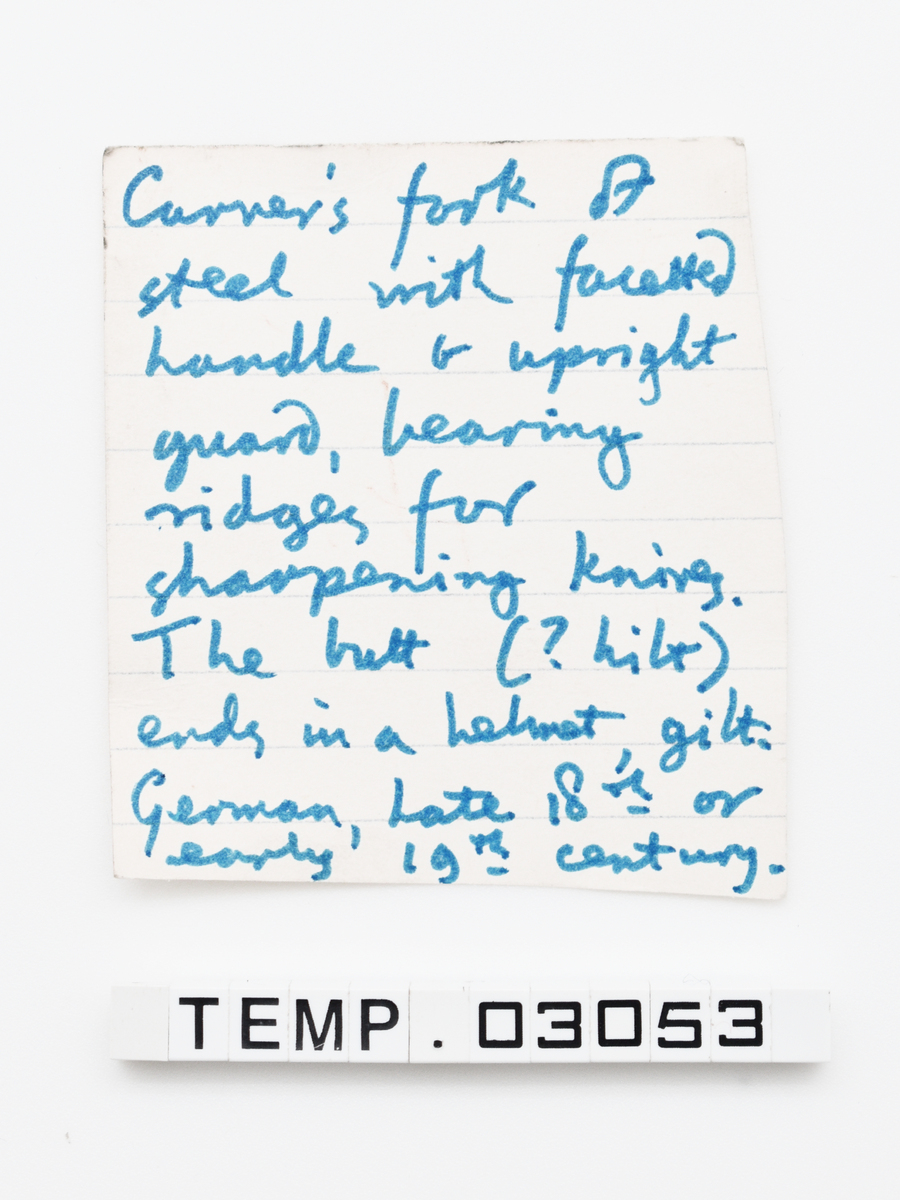 Carver's fork of
steel with facetted
handle & upright
guard, bearing
ridges for
sharpening knives.
The butt (? hilt)
ends in a helmet gilt.
German, late 18th or
early 19th century.
TEMP.03053